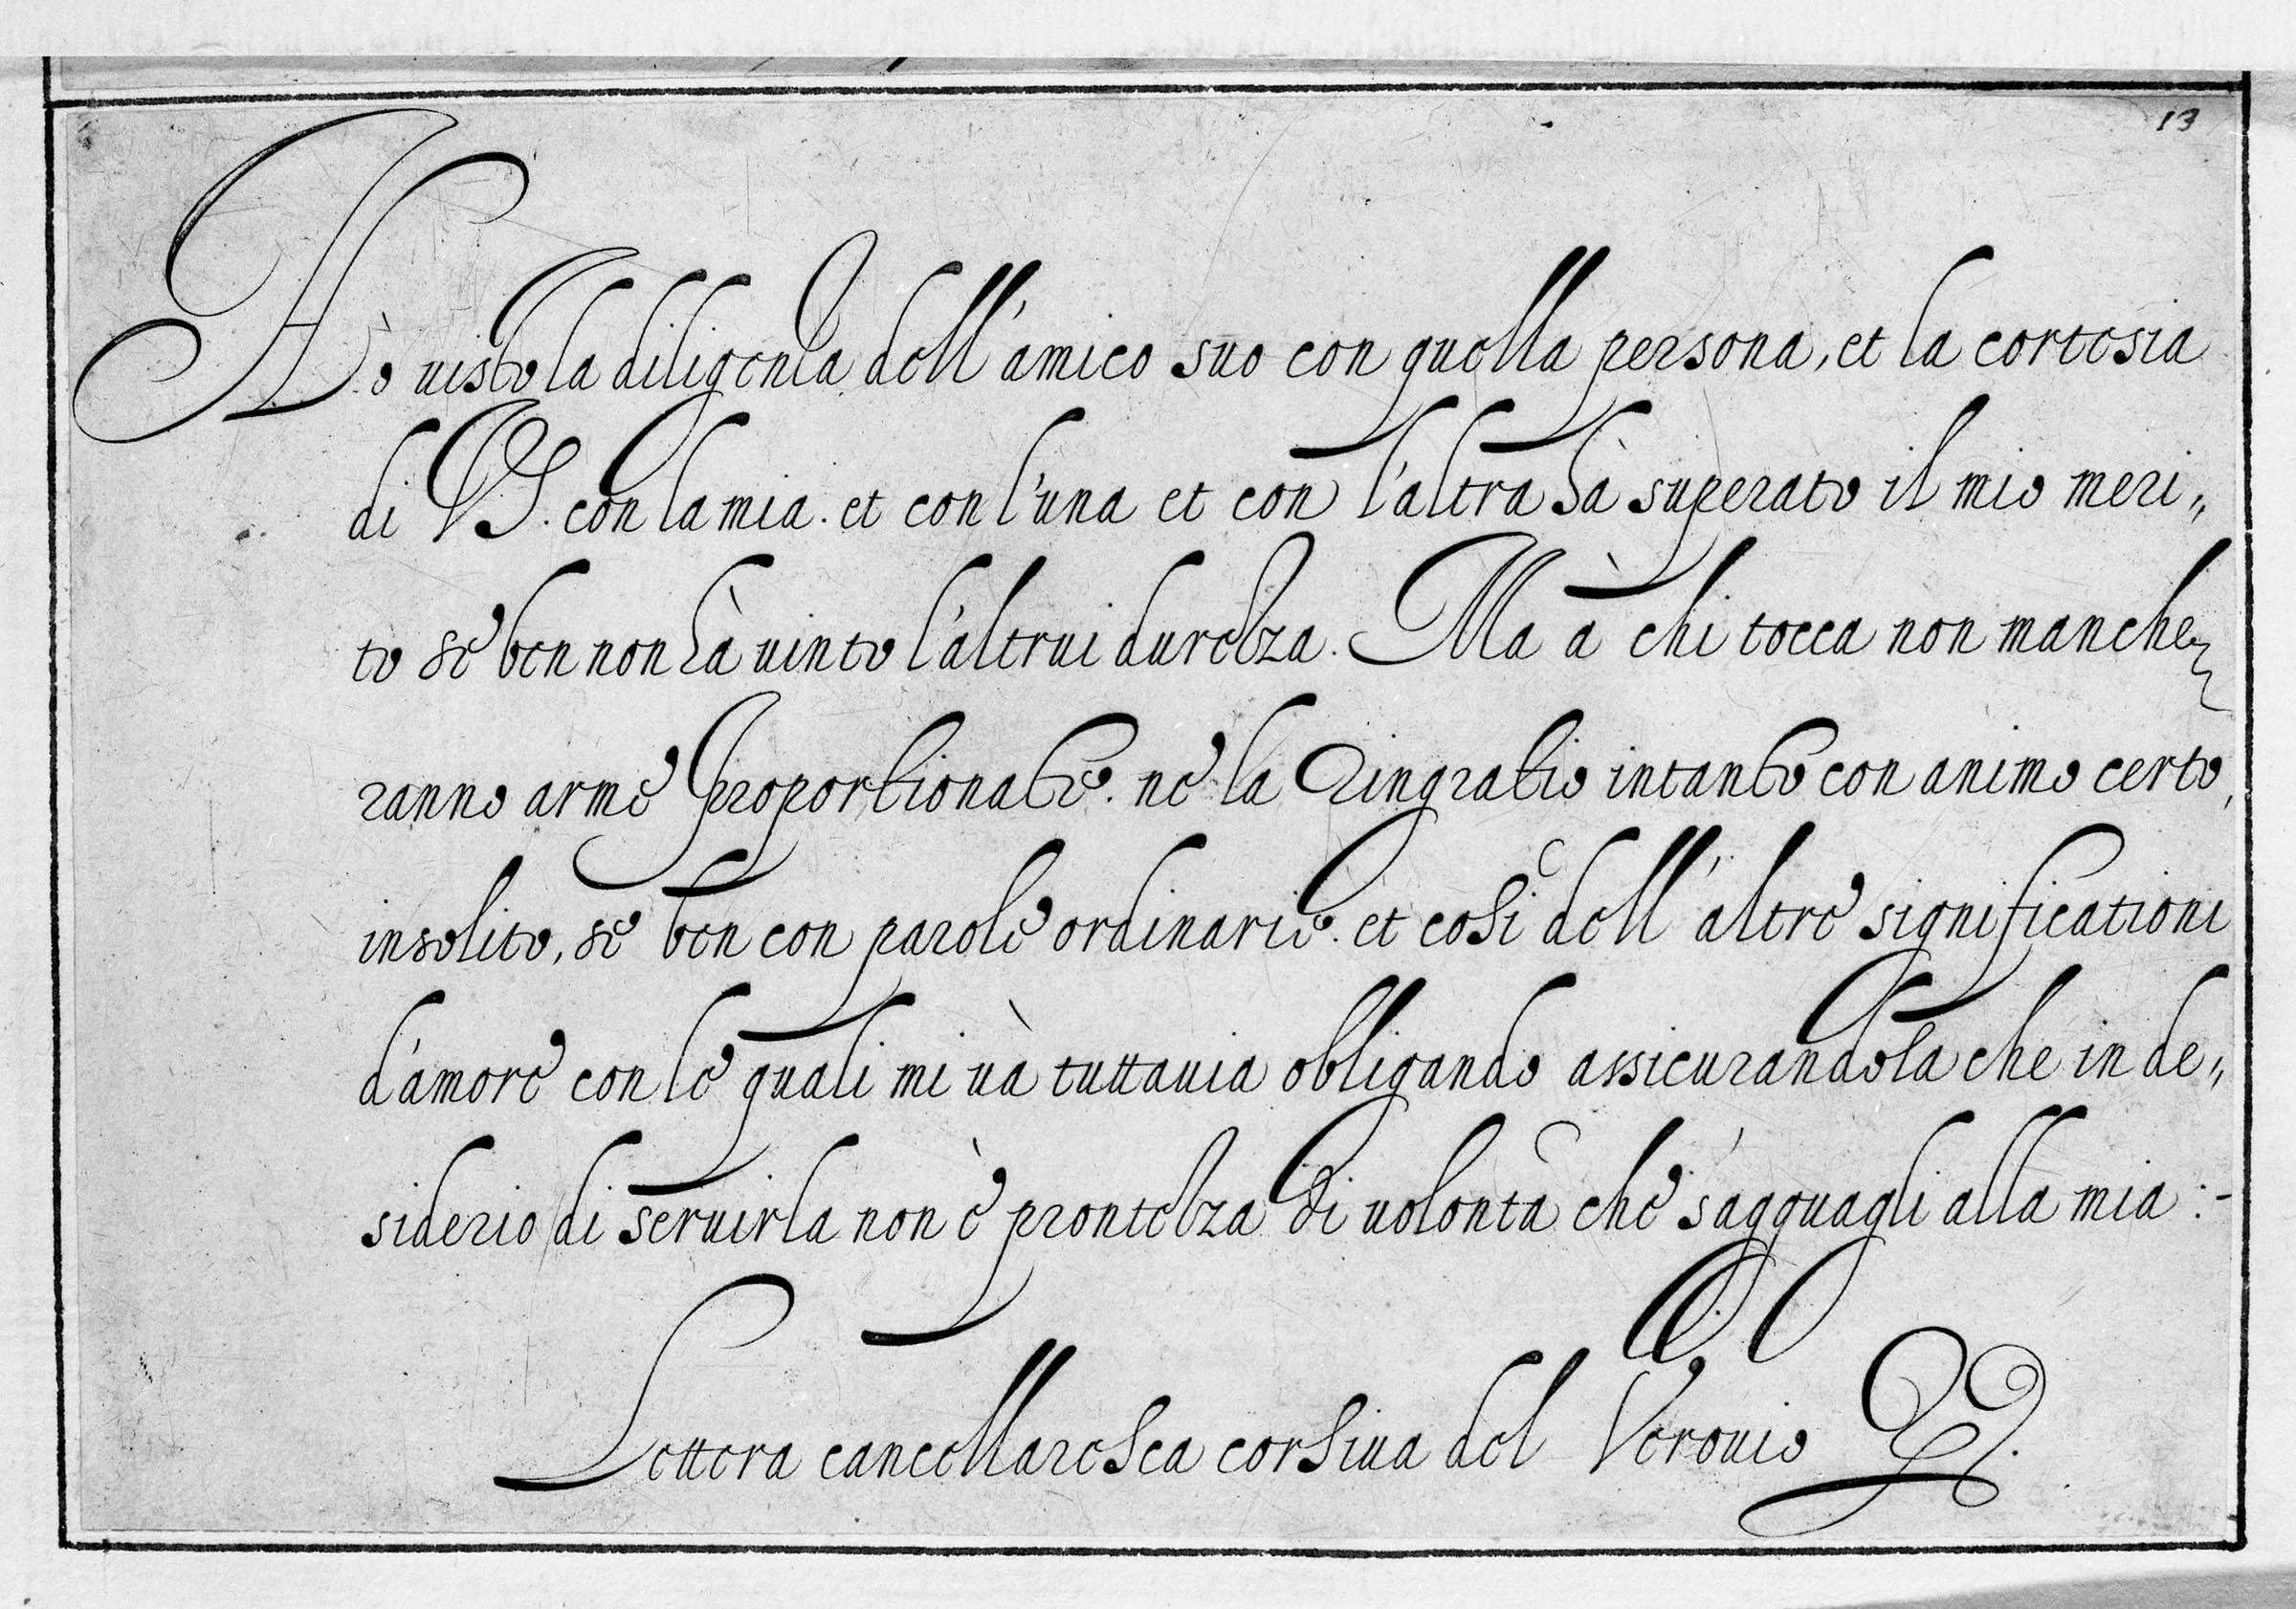 13
Hò uisto la diligentia dell'amico suo con quella persona, et la cortesia
di VS. con la mia. et con l'una et con l'altra hà superato il mio meri„
to se ben non hà uinto l'altrui durezza. Ma à chi tocca non manche
ranno arme proportionate. ne la Ringratio intanto con animo certo,
insolito, se ben con parole ordinarie. et così dell'altre significationi
d'amore con le quali mi uà tuttauia obligando assicurandola che in de„
siderio di seruirla non è prontezza di uolontà che s'agguagli alla mia :-
Lettera cancellaresca corsiua del Verouio